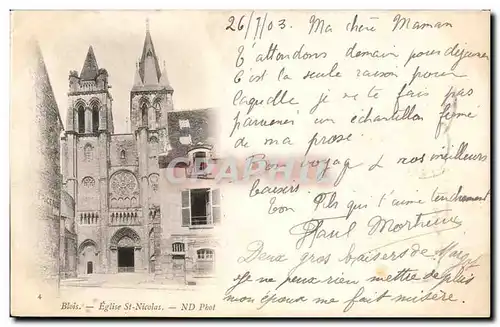 26/7/03. Ma chère Maman
t'attendons demain pour déjeuner
C'est la seule raison pour
laquelle je ne te fais pas
parvenir un échantillon fermé
de ma prose.
Bon voyage & nos meilleurs
baisers
Ton Fils qui t'aime tendrement
Paul
Deux gros baisers de
Je ne peux rien mettre de plus
mon époux me fait misère.
CPARAMA
4
Blois. — Église St-Nicolas. — ND Phot